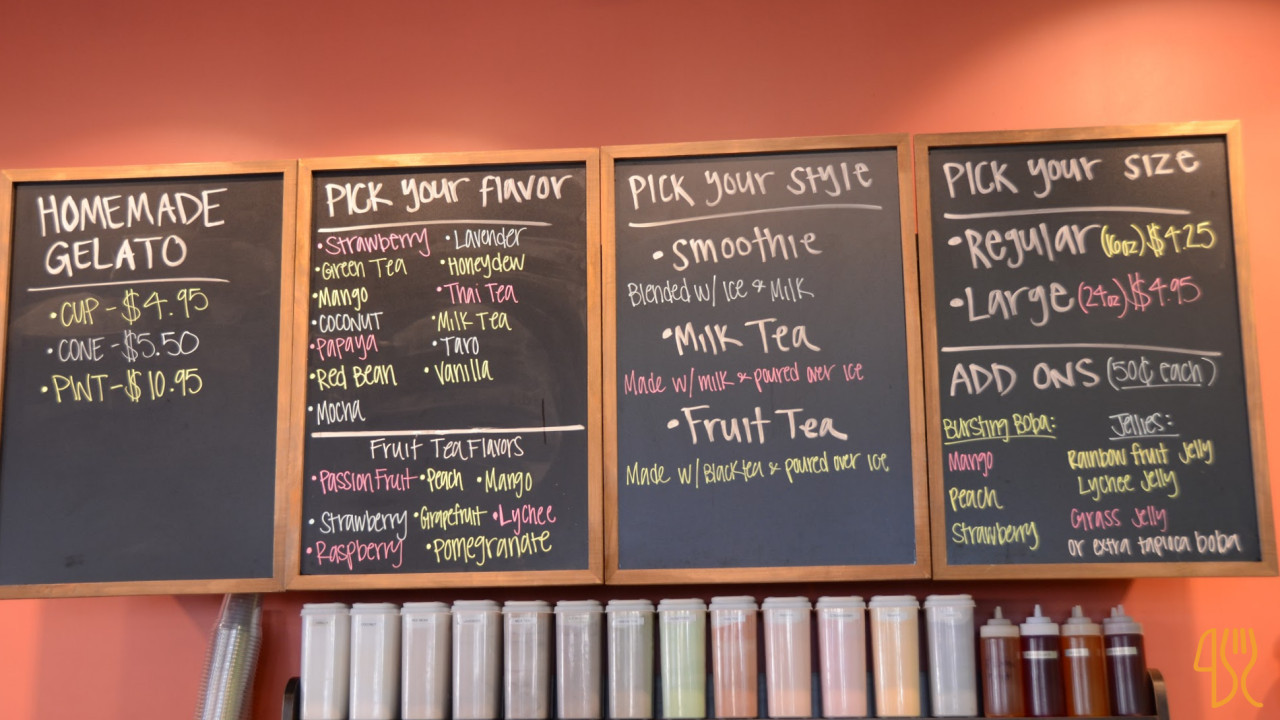 HOMEMADE
GELATO
• CUP - $4.95
• CONE - $5.50
• PINT - $10.95
PICK your flavor
• Strawberry • Lavender
• Green Tea • Honeydew
• Mango • Thai Tea
• COCONUT • Milk Tea
• Papaya • Taro
• Red Bean • Vanilla
• Mocha
Fruit Tea Flavors
• Passion Fruit • Peach • Mango
• Strawberry • Grapefruit • Lychee
• Raspberry • Pomegranate
PICK your style
• Smoothie
Blended w/ Ice & Milk
• Milk Tea
Made w/ milk & poured over ice
• Fruit Tea
Made w/ Black tea & poured over ice
PICK your size
• Regular (16oz) $4.25
• Large (24oz) $4.95
ADD ONS (50¢ each)
Bursting Boba: Jellies:
Mango Rainbow fruit Jelly
Peach Lychee Jelly
Strawberry Grass Jelly
or extra tapioca boba